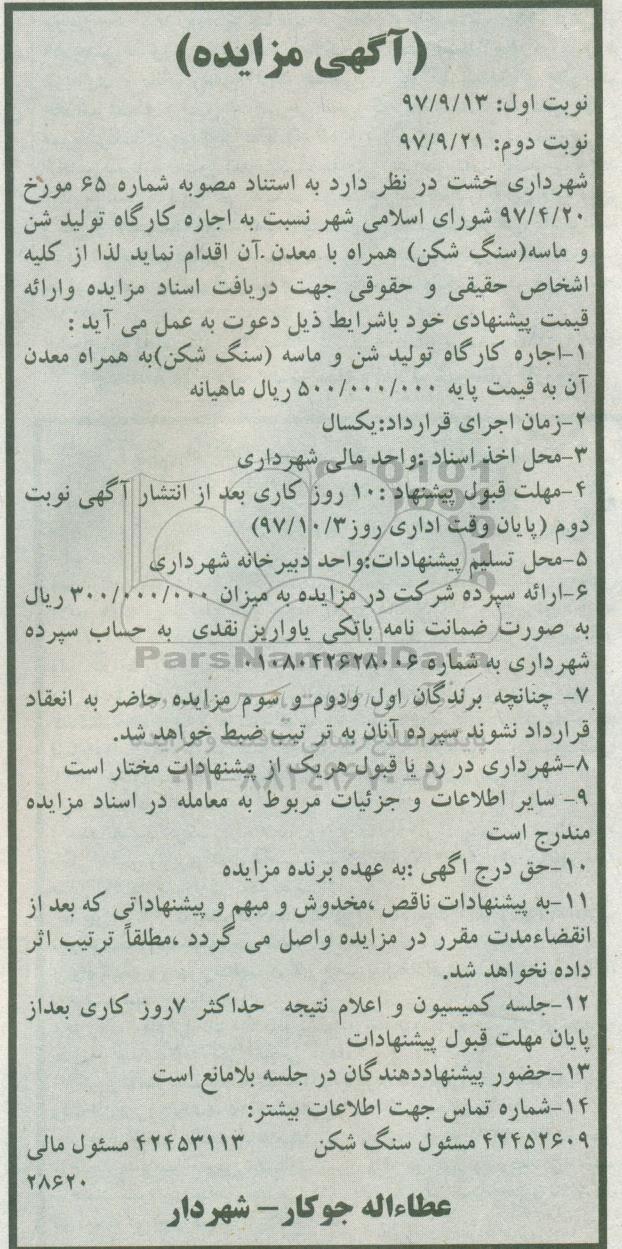 (آگهی مزایده)
نوبت اول: ۹۷/۹/۱۳
نوبت دوم: ۹۷/۹/۲۱
شهرداری خشت در نظر دارد به استناد مصوبه شماره ۶۵ مورخ
۹۷/۴/۲۰ شورای اسلامی شهر نسبت به اجاره کارگاه تولید شن
و ماسه(سنگ شکن) همراه با معدن .آن اقدام نماید لذا از کلیه
اشخاص حقیقی و حقوقی جهت دریافت اسناد مزایده وارائه
قیمت پیشنهادی خود باشرایط ذیل دعوت به عمل می آید :
۱-اجاره کارگاه تولید شن و ماسه (سنگ شکن)به همراه معدن
آن به قیمت پایه ۵۰۰/۰۰۰/۰۰۰ ریال ماهیانه
۲-زمان اجرای قرارداد:یکسال
۳-محل اخذ اسناد :واحد مالی شهرداری
۴-مهلت قبول پیشنهاد :۱۰ روز کاری بعد از انتشار آگهی نوبت
دوم (پایان وقت اداری روز۹۷/۱۰/۳)
۵-محل تسلیم پیشنهادات:واحد دبیرخانه شهرداری
۶-ارائه سپرده شرکت در مزایده به میزان ۳۰۰/۰۰۰/۰۰۰ ریال
به صورت ضمانت نامه باتکی یاواریز نقدی به حساب سپرده
شهرداری به شماره ۰۱۰۸۰۴۲۶۲۸۰۰۶
ParsNamadData
۷- چنانچه برندگان اول ودوم و سوم مزایده حاضر به انعقاد
قرارداد نشوند سپرده آنان به تر تیب ضبط خواهد شد.
۸-شهرداری در رد یا قبول هریک از پیشنهادات مختار است
۰۲۱-۸۸۳۴۹۶۷۰-۵
۹- سایر اطلاعات و جزئیات مربوط به معامله در اسناد مزایده
مندرج است
۱۰-حق درج اگهی :به عهده برنده مزایده
۱۱-به پیشنهادات ناقص ،مخدوش و مبهم و پیشنهاداتی که بعد از
انقضاءمدت مقرر در مزایده واصل می گردد ،مطلقاً ترتیب اثر
داده نخواهد شد.
۱۲-جلسه کمیسیون و اعلام نتیجه حداکثر ۷روز کاری بعداز
پایان مهلت قبول پیشنهادات
۱۳-حضور پیشنهاددهندگان در جلسه بلامانع است
۱۴-شماره تماس جهت اطلاعات بیشتر:
۴۲۴۵۲۶۰۹ مسئول سنگ شکن ۴۲۴۵۳۱۱۳ مسئول مالی
۲۸۶۲۰
عطاءاله جوکار- شهردار